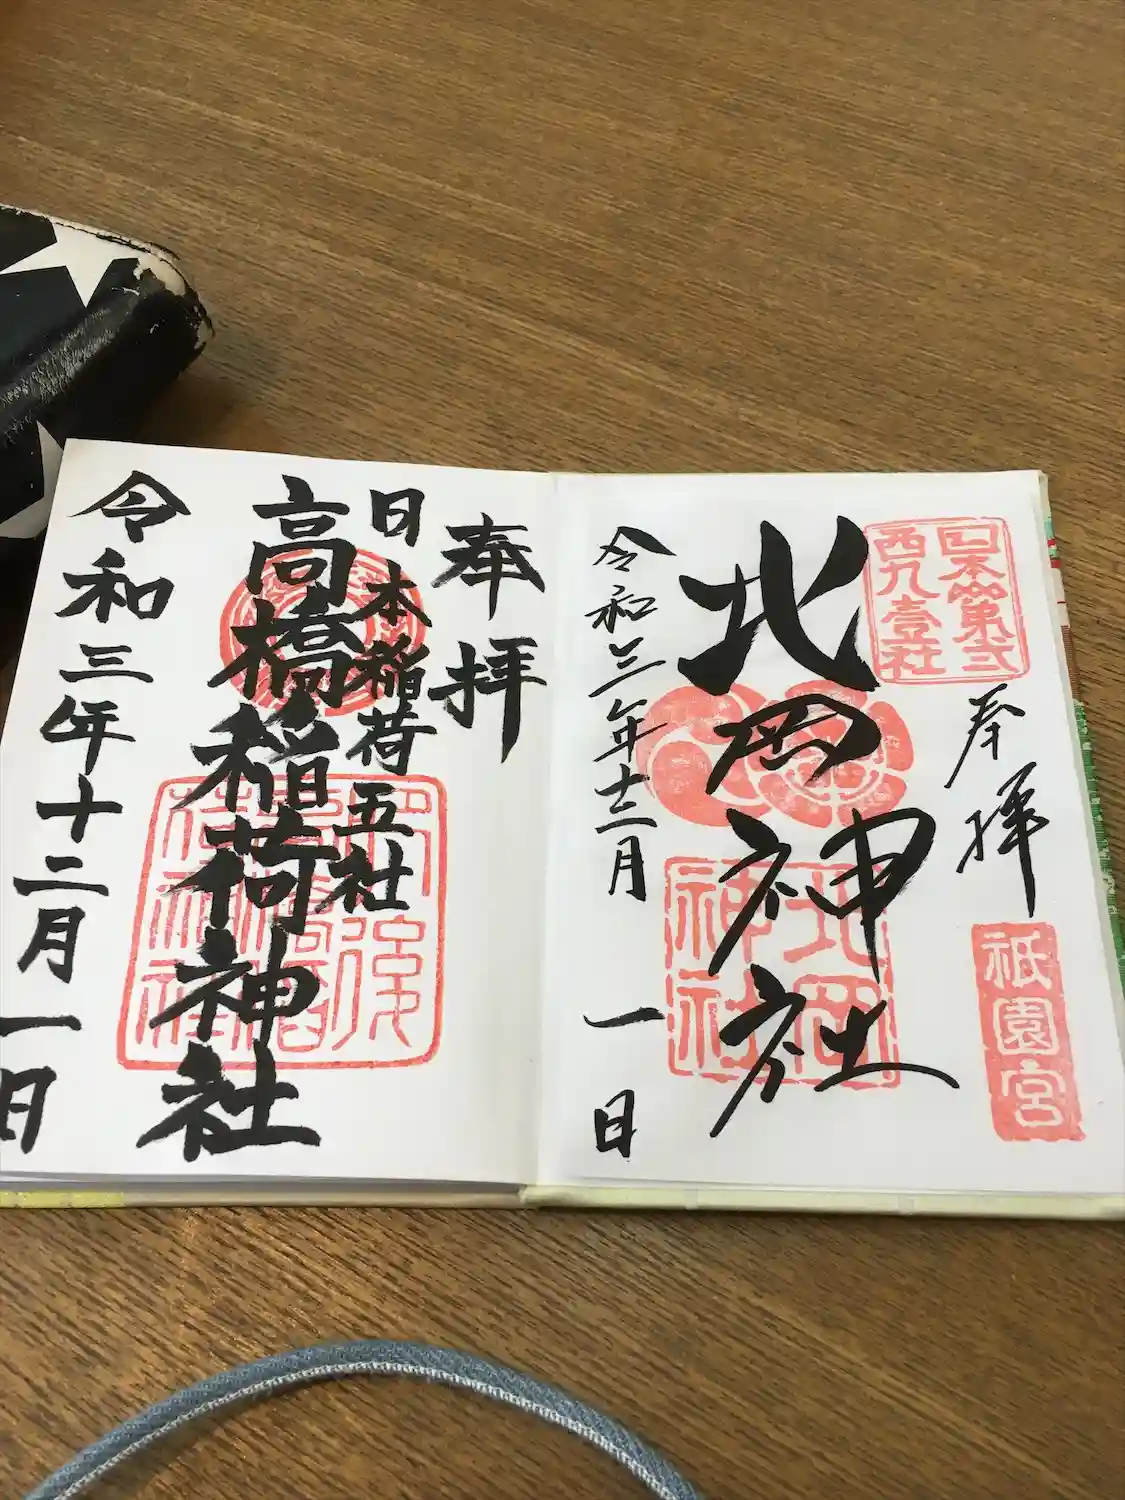 日本第弐
西九壱社
奉拝
祇園宮
北岡神社
北岡
神社
令和三年十二月一日
奉拝
日本稲荷五社
高橋稲荷神社
令和三年十二月一日